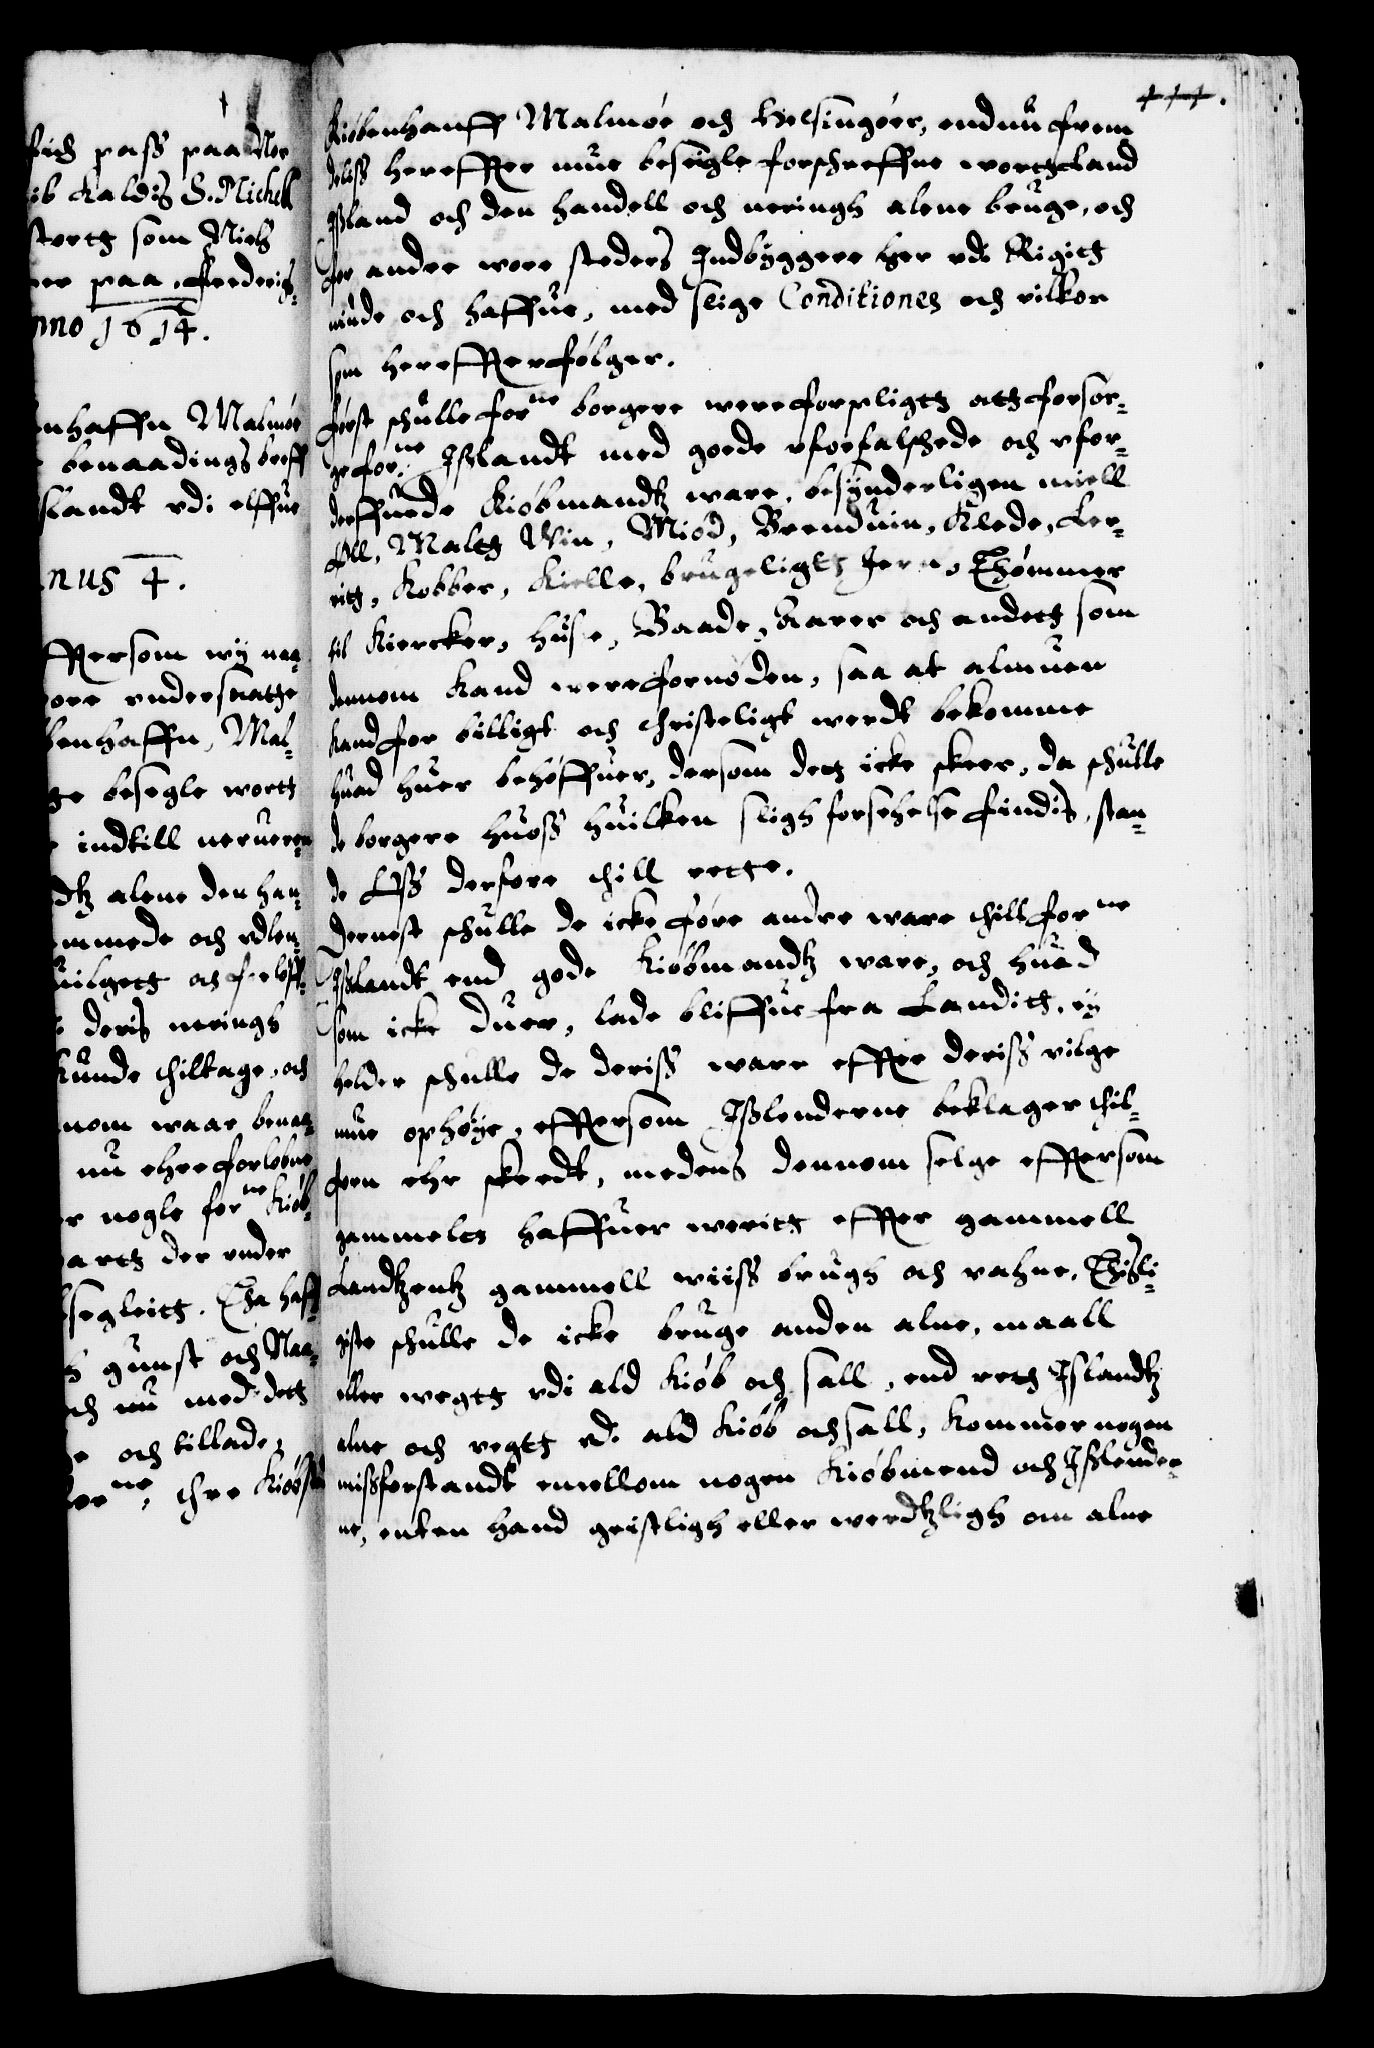 fich pass paa Nor
ib kaldis S. Michell
stortz som Niels
er paa, Frederigs-
nno 1614.
nhaffn Malmøe
benaadings breff
slandt vdi elffue
nus 4.
fftersom wy naa-
vore vndersaatge
benhaffn, Mal-
ge beseigle wortz
indtill neruere-
dtz alene den han-
mmede och vdlen-
uilgett och frelst-
deris nerings
kunde thiltage, och
nom waar benaa-
nu ehre forlobne
r nogle forne Kiøb-
partz der vnder
segleitt. Tha haff-
gunst och Naa-
ch nu med dett
och tillade,
forne, thre Kiøbste
444.
Kiøbenhauff Malmøe och Helsingøer, endnu frem
deliss herefftter mue beseigle forschreffne wortz Land
Issland och den handell och neringh alene bruge, och
for andre wore steders Indbyggere her vdi Rigitt
niude och haffue, med slige Conditiones och vilkor
som herefftter følger.
først schulle forne borgere were forpligtt att forsor-
ge forne Isslandt med goede vforfalschede och vfor-
derffuede Kiøbmandtz ware, besynderligen miell
Øll, Maltt Win, Miød, Brenduin, Klede, Ler-
ritt, Kobber, Kielle, brugeligtt Jern, Thømmer
til Kiercker, huse, Baade, Aarer och andett som
dennom kand were fornøden, saa at almuen
kand for billigt och christeligt werdt bekomme
huad huer behøffuer, dersom dett icke skeer, da schulle
de borgere huoss huilken sligh forsehelse findis, stan-
de Oss derfore thill rette.
Dernest schulle de icke føre andre ware thill forne
Isslandt end gode Kiøbmandtz ware, och huad
som icke duer, lade bliffue fra Landitt, ey
helder schulle de deriss ware effter deriss vilge
mue ophøye, efftersom Isslenderne beklager thil-
forn ehr skeedt, medens dennom selge efftersom
gammelts haffuer weritt effter gammell
Landtzens gammell wiiss brugh och vahne. Thisli-
giste schulle de icke bruge anden alne, maall
eller wegtt vdi ald Kiøb och sall, end rett Islandtz
alne och vegtt vdi ald Kiøb och sall, Kommer nogen
missforstandt emellom nogen Kiøbmend och Isslender-
ne, enten hand geistligh eller werdtzligh om alne